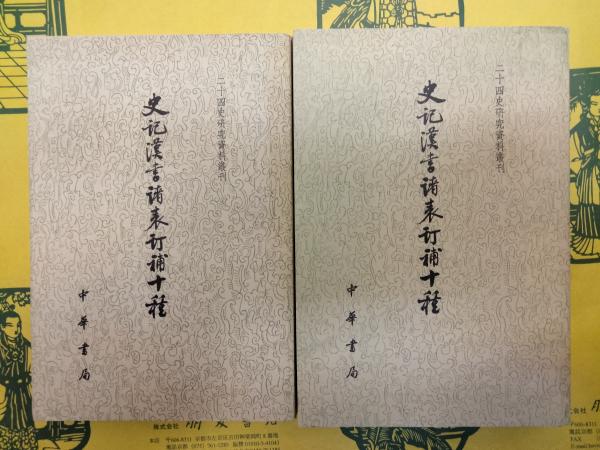 二十四史研究資料叢刊
史記漢書諸表訂補十種
中華書局
二十四史研究資料叢刊
史記漢書諸表訂補十種
中華書局
株式会社 朋友書
本店 〒606-8311 京都市左京区吉田神楽岡町8番地
電話 (075) 761-1285 FAX
株式会社 朋
〒606-8311
東京